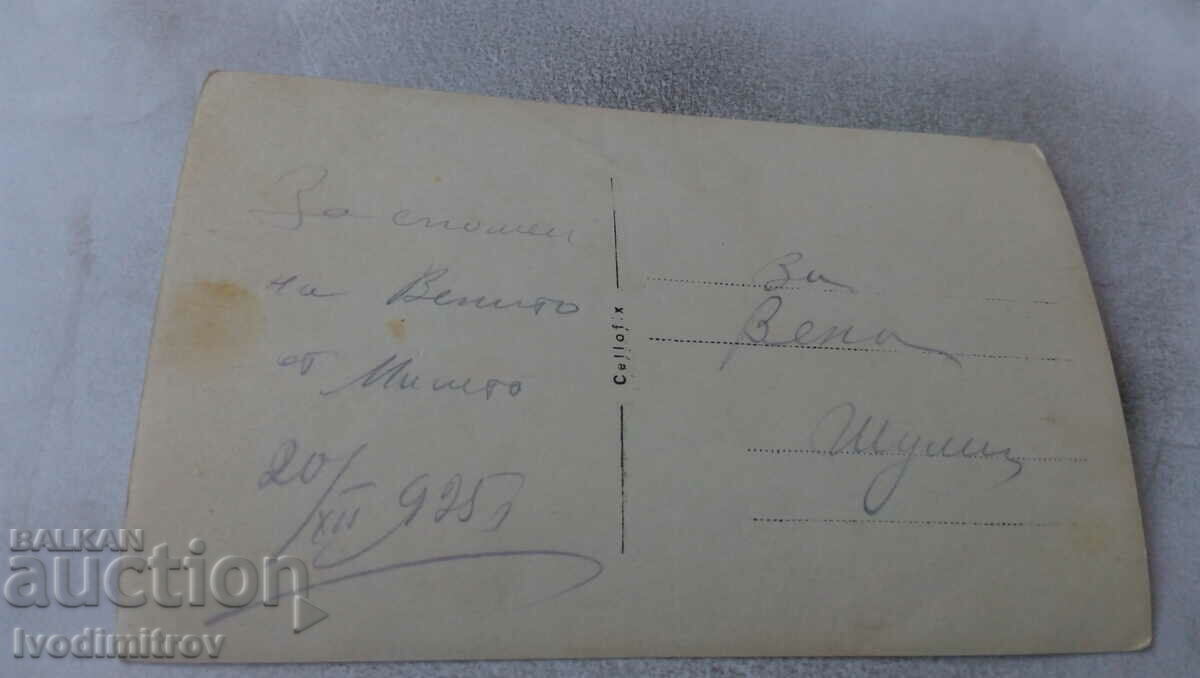 За спомен
на Венито
от Милето
20/XII 925 г
Cellofix
За
Вена
Шумен
BALKAN
auction
Ivodimitrov